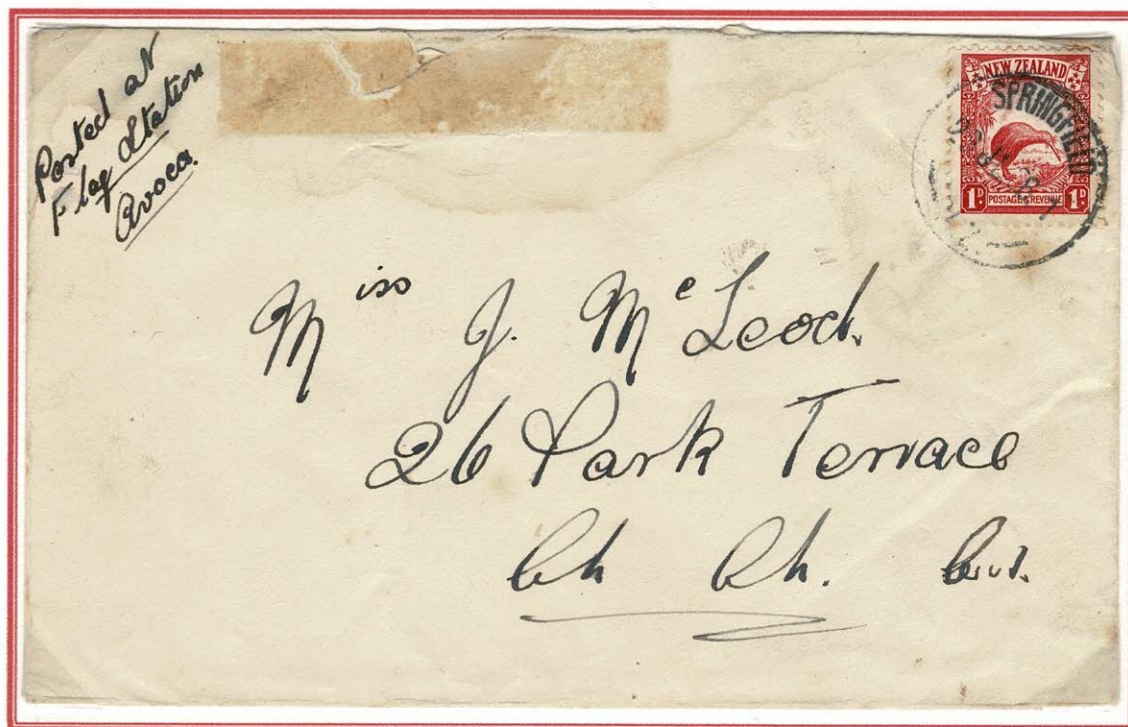 Posted at
Flag Station
Avoca.
NEW ZEALAND
SPRINGFIELD
1D POSTAGE & REVENUE 1D
Miss J. McLeod.
26 Park Terrace
Ch Ch.